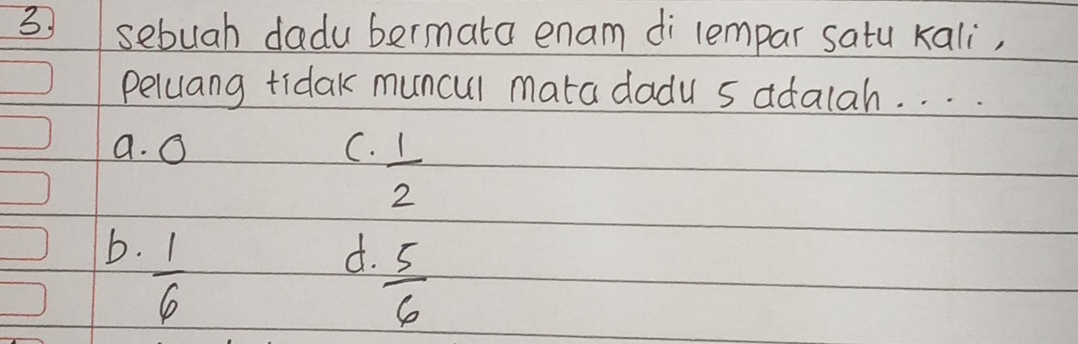 3. sebuah dadu bermata enam di lempar satu kali,
peluang tidak muncul mata dadu 5 adalah....
a. 0 c. 1/2
b. 1/6 d. 5/6